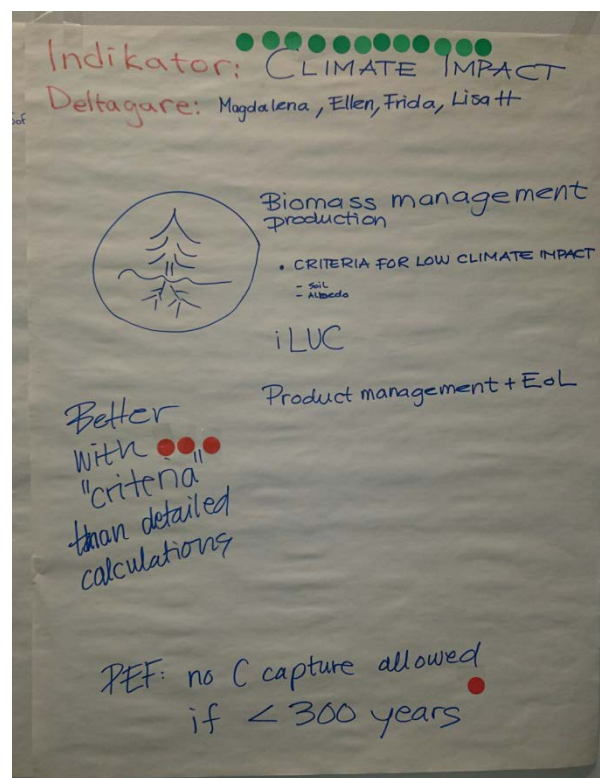 Indikator: CLIMATE IMPACT
Deltagare: Magdalena, Ellen, Frida, Lisa H
Biomass management
production
• CRITERIA FOR LOW CLIMATE IMPACT
- SOIL
- ALBEDO
iLUC
Product management + EoL
Better
with
"criteria"
than detailed
calculations
PEF: no C capture allowed
if < 300 years